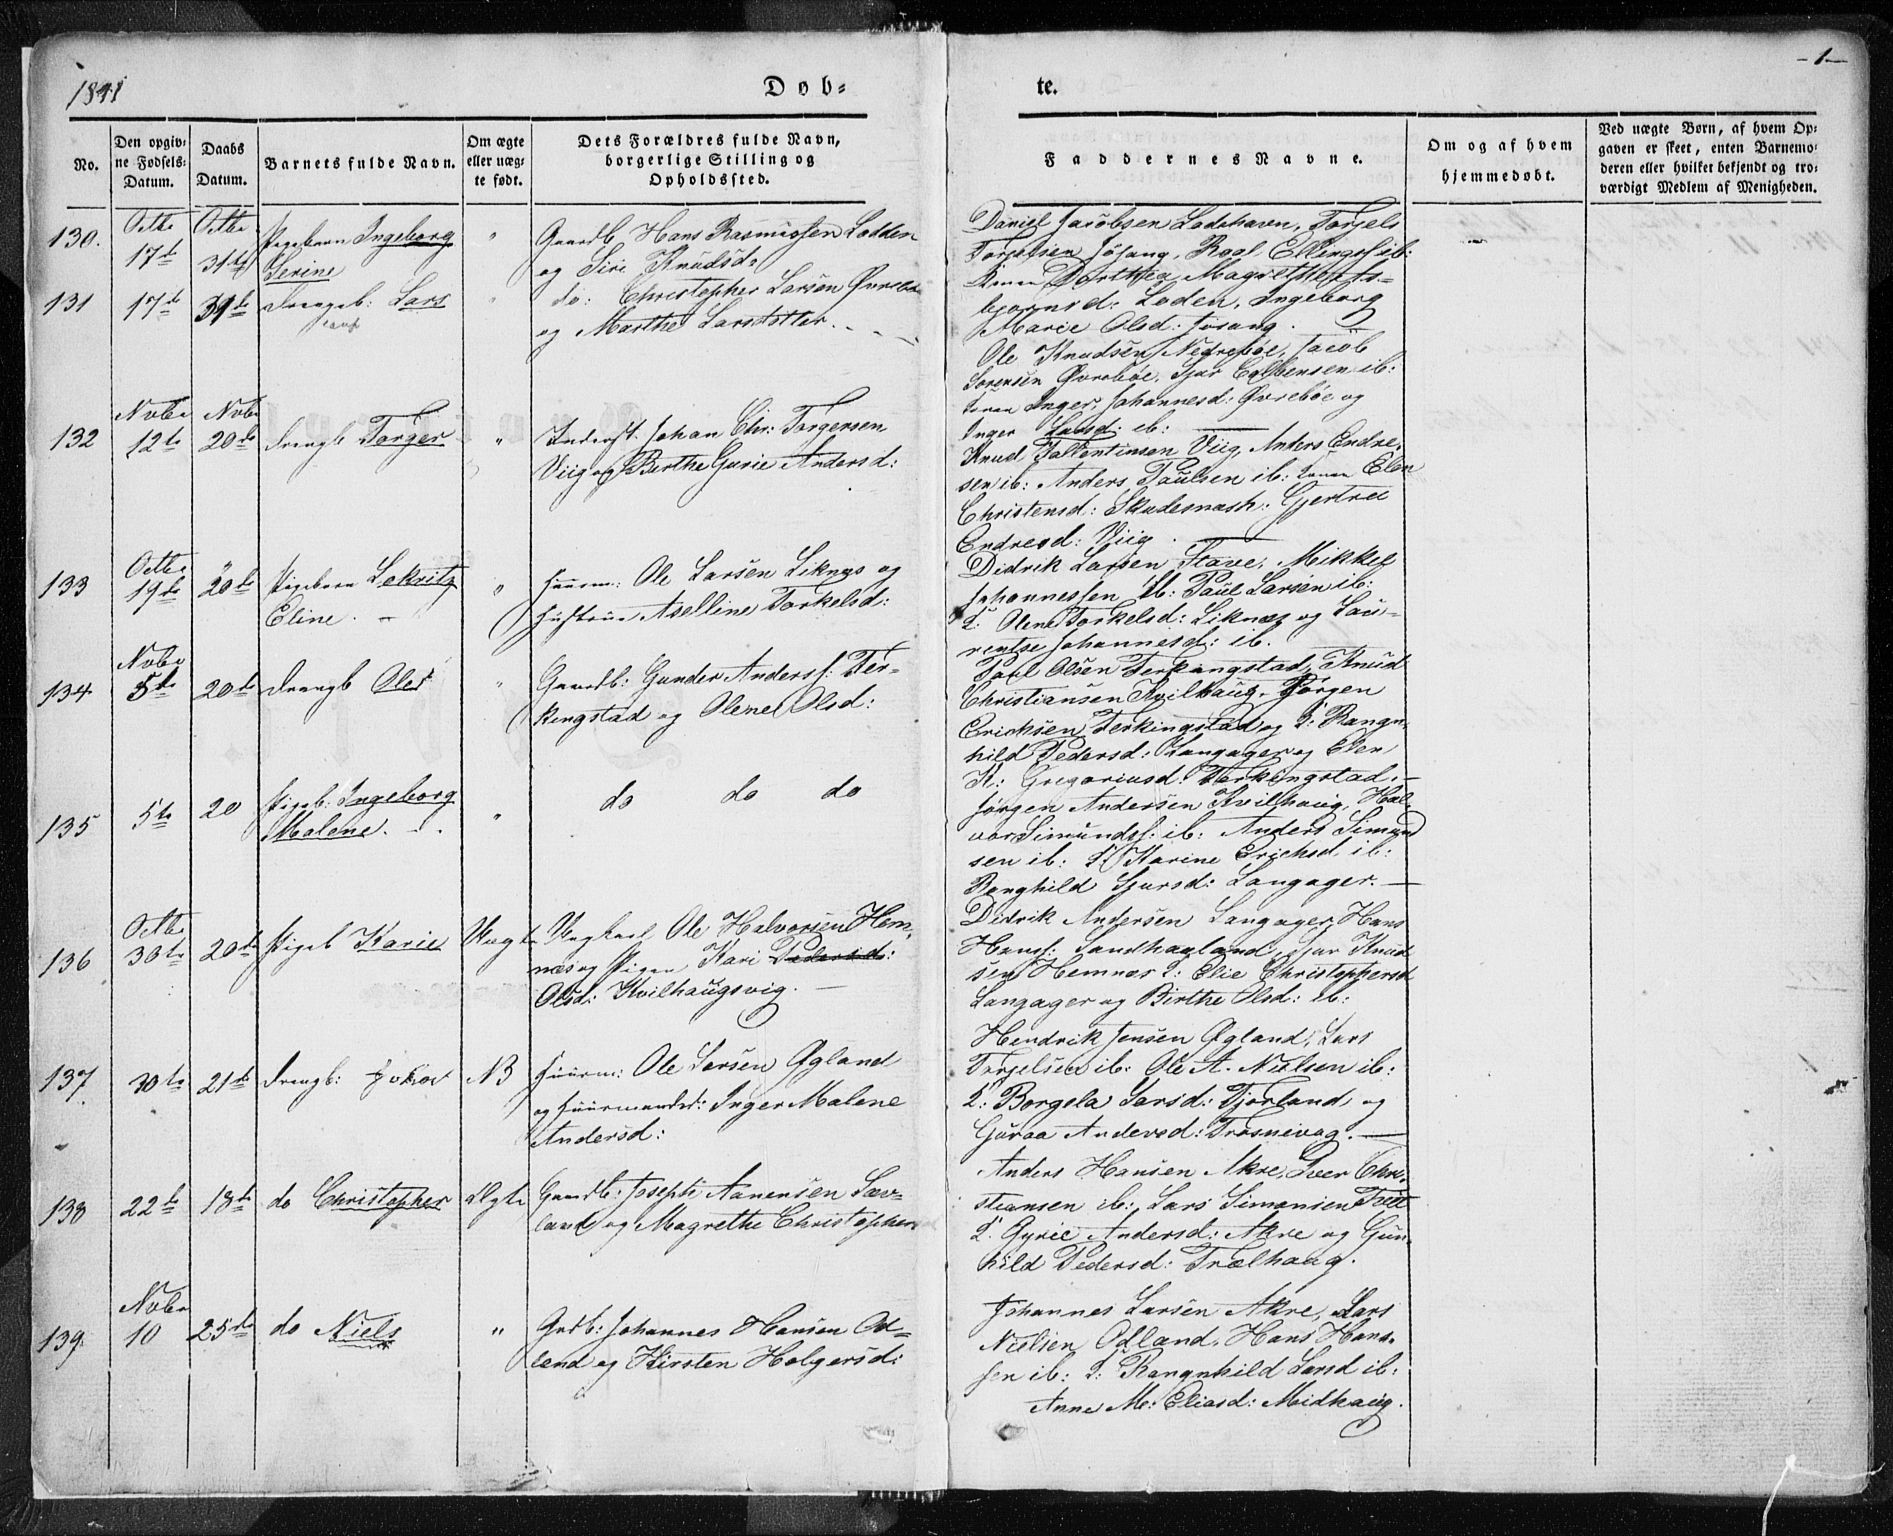 1841
Døb-
te.
-1-
No.
Den opgiv-
ne Fødsels-
Datum.
Daabs
Datum.
Barnets fulde Navn.
Om ægte
eller uæg-
te født.
Dets Forældres fulde Navn,
borgerlige Stilling og
Opholdssted.
Faddernes Navne.
Om og af hvem
hjemmedøbt.
Ved uægte Børn, af hvem Op-
gaven er skeet, enten Barnemo-
deren eller hvilket bekjendt og tro-
værdigt Medlem af Menigheden.
130.
Octbr
17de
Octbr
31te
Pigebarn Ingeborg
Serine
"
Gaardb. Hans Rasmussen Lodden
og Siri Knudsd:
Daniel Jacobsen Ladehaven, Torjels
Torjelsen Jøsang, Roal Ellingsf ib:
Dorthea Magrethe As-
bjørnsd: Loden, Ingeborg
Marie Olsd: Jøsang.
131
17de
31te
Drengeb: Lars
"
do: Christopher Larsen Øvrebø
og Marthe Larsdotter.
Ole Knudsen Nedrebøe, Jacob
Sørensen Øvrebøe, Sjur Colbensen ib:
Inger Johannesd: Øvrebøe og
Inger Larsd: ib:
132
Novbr
12te
Novbr
20de
Drengb Torger
"
Inderst: Johan Chr: Torgersen
Viig og Berthe Gurie Andersd:
Knud Fallentinsen Viig, Anders Endre-
sen ib: Anders Paulsen ib: Elen
Christensd: Skudesnæsh: Gjertru
Endresd: Viig.
133
Octbr
19de
"
20de
Pigebarn Lekritz
Eline.
"
Huusm: Ole Larsen Liknæs og
Hustrue Aselline Torkelsd:
Didrik Larsen Stave, Mikkel
Johannessen ib: Paul Larsen ib:
Q: Olene Torkelsd: Liknæs og Lau-
rentse Johannesd: ib.
134
Novbr
5te
20de
Drengb Olai
"
Gaardb: Gunder Andersf: Fer-
kingstad og Olene Olsd:
Paul Olsen Ferkingstad, Knud
Christiansen Kvilhaug, Jørgen
Erichsen Ferkingstad og Q: Rangn-
hild Pedersd: Langager og Elen
K: Gregoriusd: Ferkingstad.
135
5te
20
Pigeb: Ingeborg
Malene.
"
do do do
Jørgen Andersen Kvilhaug, Hal-
vor Simundsf: ib: Anders Simund
sen ib: Q: Karine Erichsd. ib:
Ranghild Sjursd: Langager.
136
Octbr
30te
20de
Pigeb Karie
Uægte
Ungkarl Ole Halvorsen Hem-
næs og Pigen Kari Pedersd:
Olsd: Kvilhaugsvig.
Didrik Andersen Langager, Hans
Hansf: Sandhagland, Sjur Knud
sen Hemnæs Q: Elie Christophersd
Langager og Birthe Olsd: ib:
137
30te
21de
Drengb:
NB
Huusm: Ole Larsen Øgland
og Huusmandsd: Inger Malene
Andersd:
Hendrik Jensen Øgland, Lars
Torjelsen ib: Ole A. Nielsen ib:
Q: Borgela Larsd: Tjorland og
Guraa Andersd: Trosnevag.
138
22de
18de
do Christopher
Ægte
Gaardb: Joseph Aanensen Sæv-
land og Magrethe Christophers
Anders Hansen Akre, Iver Chri-
stiansen ib: Lars Simonsen Treit
Q: Gyrie Andersd: Akre og Gun-
hild Pedersd: Trælhaug.
139
Novbr
10
25de
do Niels
"
Grdb: Johannes Hansen Od-
land og Kirsten Holgersd:
Johannes Larsen Akre, Lars
Nielsen Odland, Hans Han-
sen ib: Q: Rangnhild Larsd ib:
Anne M: Eliasd: Midhaug.